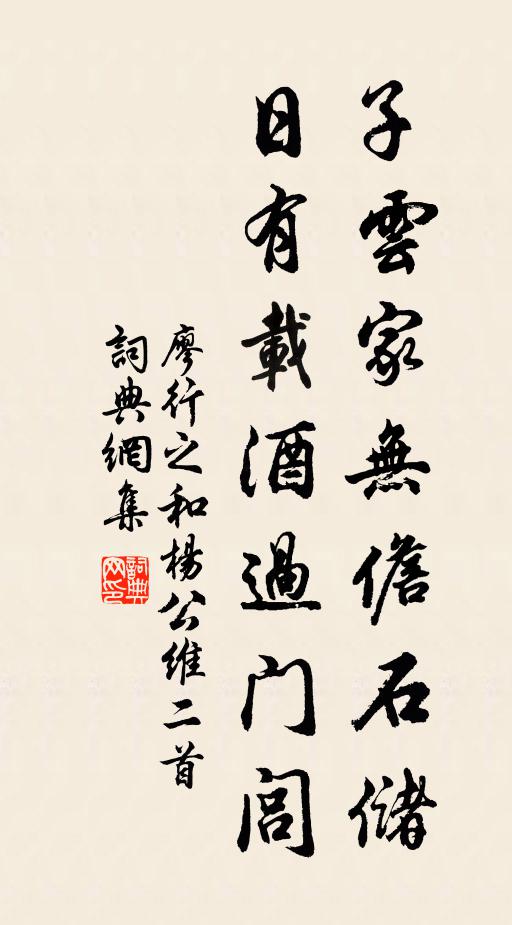 子雲家無儋石儲
日有載酒過门閭
廖行之和楊公維二首
詞典網集
詞典网印